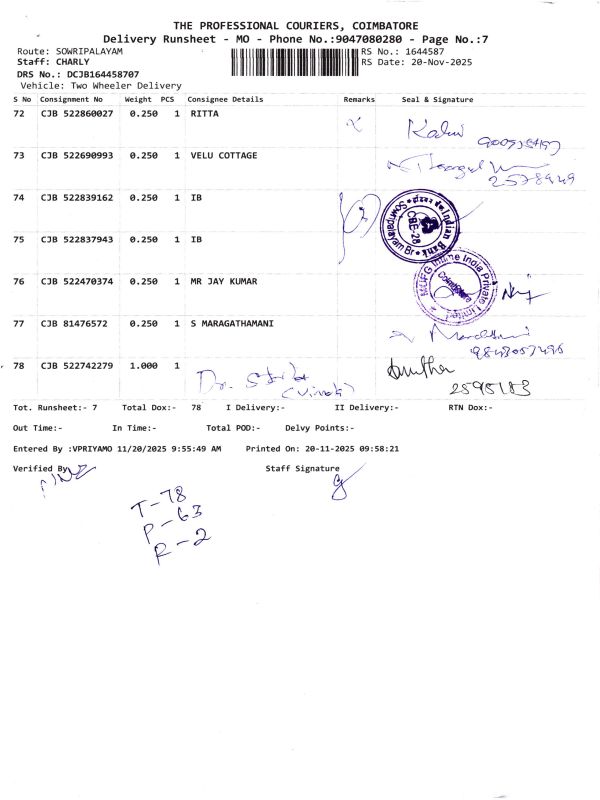 THE PROFESSIONAL COURIERS, COIMBATORE
Delivery Runsheet - MO - Phone No.:9047080280 - Page No.:7
Route: SOWRIPALAYAM RS No.: 1644587
Staff: CHARLY RS Date: 20-Nov-2025
DRS No.: DCJB164458707
Vehicle: Two Wheeler Delivery
S No Consignment No Weight PCS Consignee Details Remarks Seal & Signature
72 CJB 522860027 0.250 1 RITTA
73 CJB 522690993 0.250 1 VELU COTTAGE
2578949
74 CJB 522839162 0.250 1 IB
Indian Bank
Sowripalayam Br.
CBE-28
75 CJB 522837943 0.250 1 IB
76 CJB 522470374 0.250 1 MR JAY KUMAR
India Private Limited
Coimbatore
77 CJB 81476572 0.250 1 S MARAGATHAMANI
9843057496
78 CJB 522742279 1.000 1
Dr.
2595183
Tot. Runsheet:- 7 Total Dox:- 78 I Delivery:- II Delivery:- RTN Dox:-
Out Time:- In Time:- Total POD:- Delvy Points:-
Entered By :VPRIYAMO 11/20/2025 9:55:49 AM Printed On: 20-11-2025 09:58:21
Verified By Staff Signature
T-78
P-63
R-2